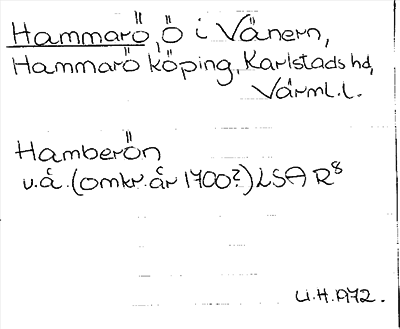 Hammarö, Ö i Vänern,
Hammarö köping, Karlstads hd,
Värml. l.
Hamberön
u.å. (omkr. år 1700?) LSA R8
U.H. 1972.